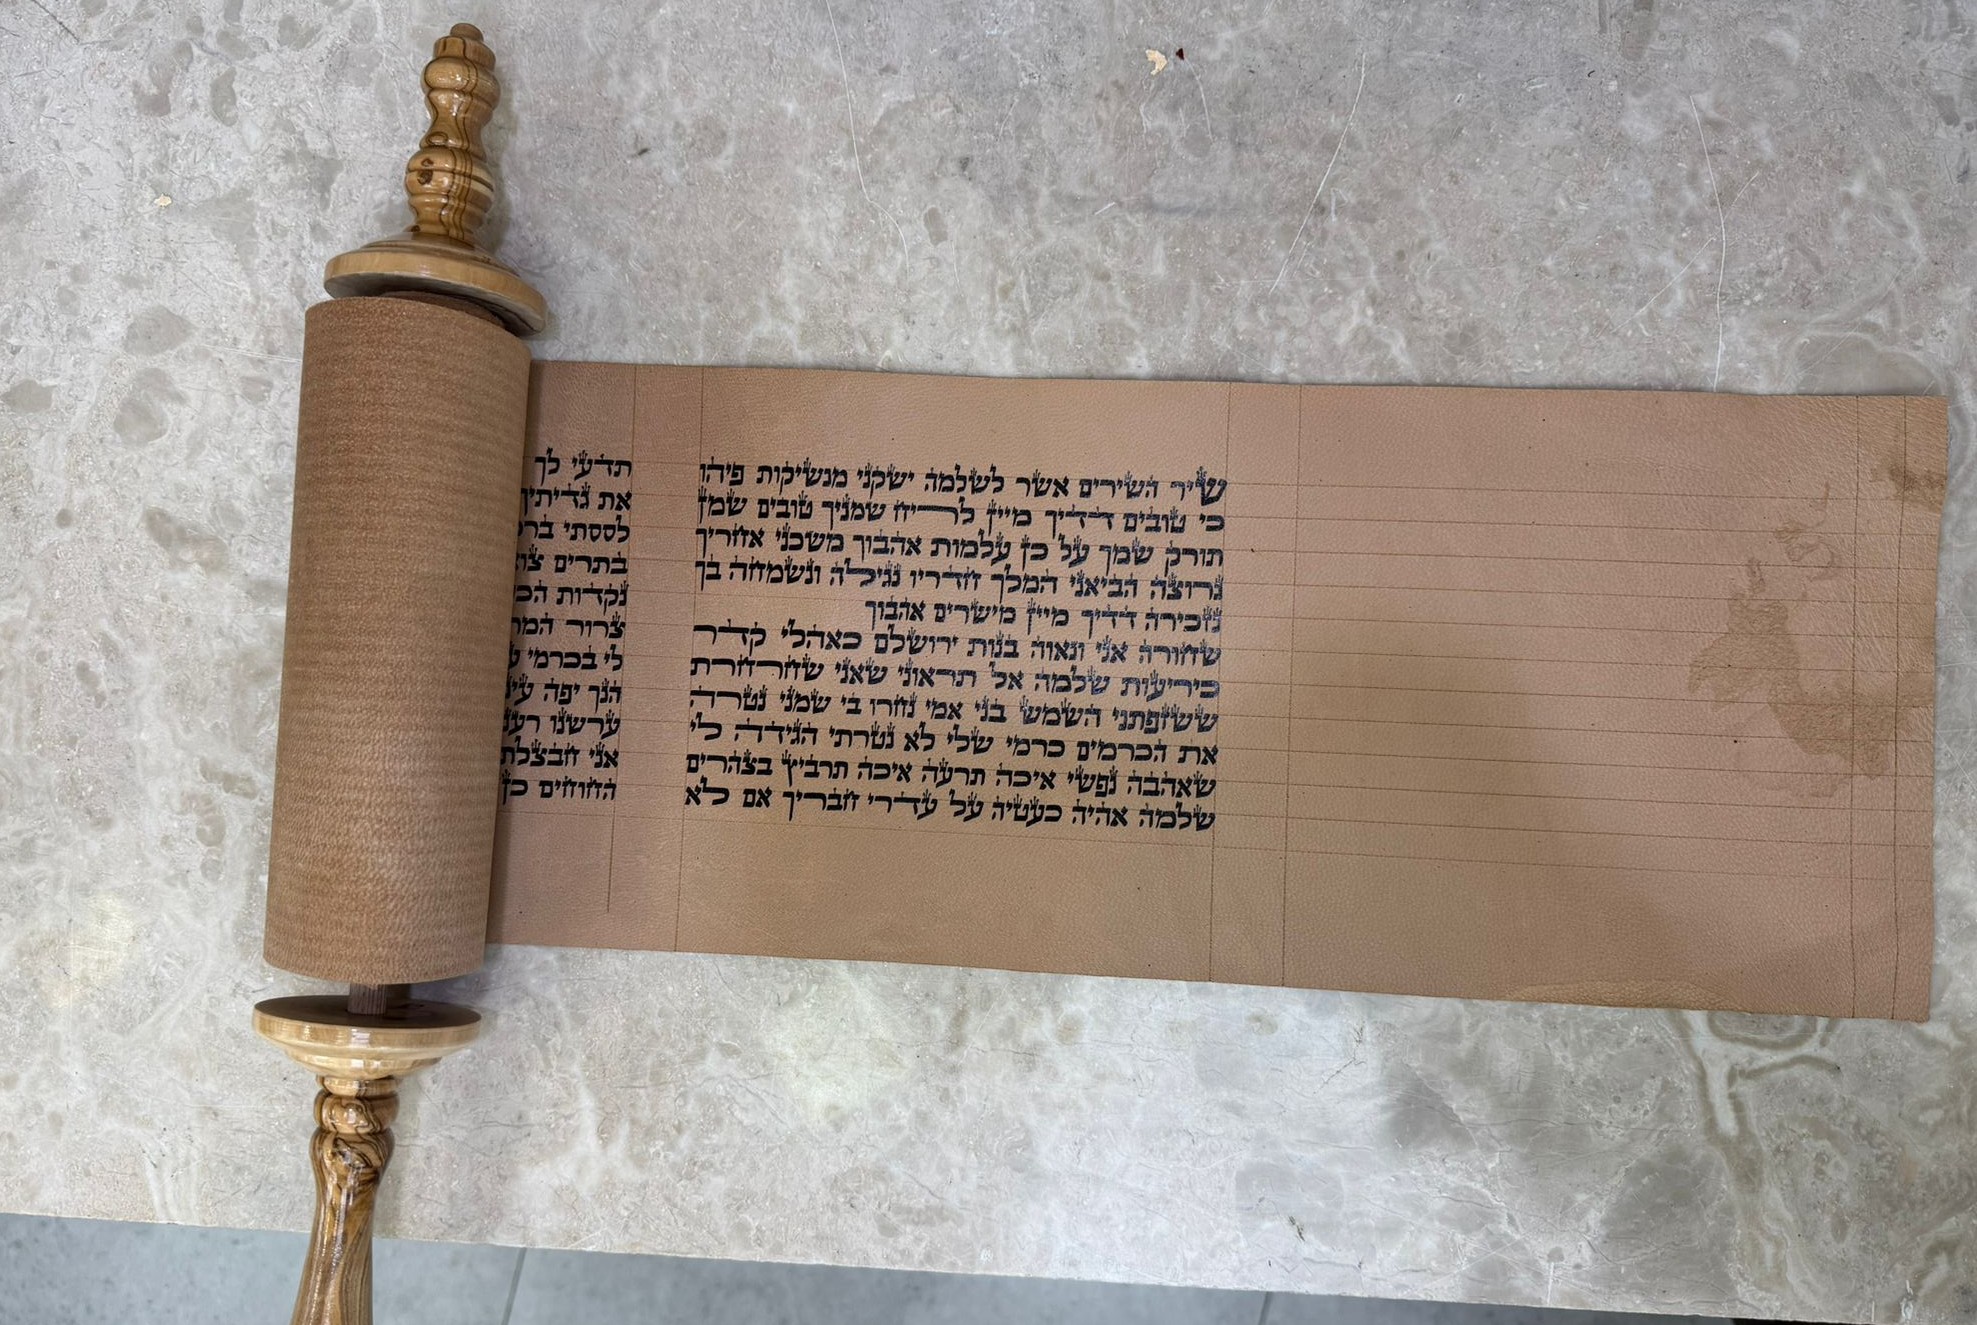 שיר השירים אשר לשלמה ישקני מנשיקות פיהו
כי טובים דדיך מיין לריח שמניך טובים שמן
תורק שמך על כן עלמות אהבוך משכני אחריך
נרוצה הביאני המלך חדריו נגילה ונשמחה בך
נזכירה דדיך מיין מישרים אהבוך
שחורה אני ונאוה בנות ירושלם כאהלי קדר
כיריעות שלמה אל תראוני שאני שחרחרת
ששזפתני השמש בני אמי נחרו בי שמני נטרה
את הכרמים כרמי שלי לא נטרתי הגידה לי
שאהבה נפשי איכה תרעה איכה תרביץ בצהרים
שלמה אהיה כעטיה על עדרי חבריך אם לא
תדעי לך
את גדיתיך
לססתי
בתרים
נקדות
צרור
לי בכרמי
הנך יפה
ערשנו
אני חבצלת
החוחים כן